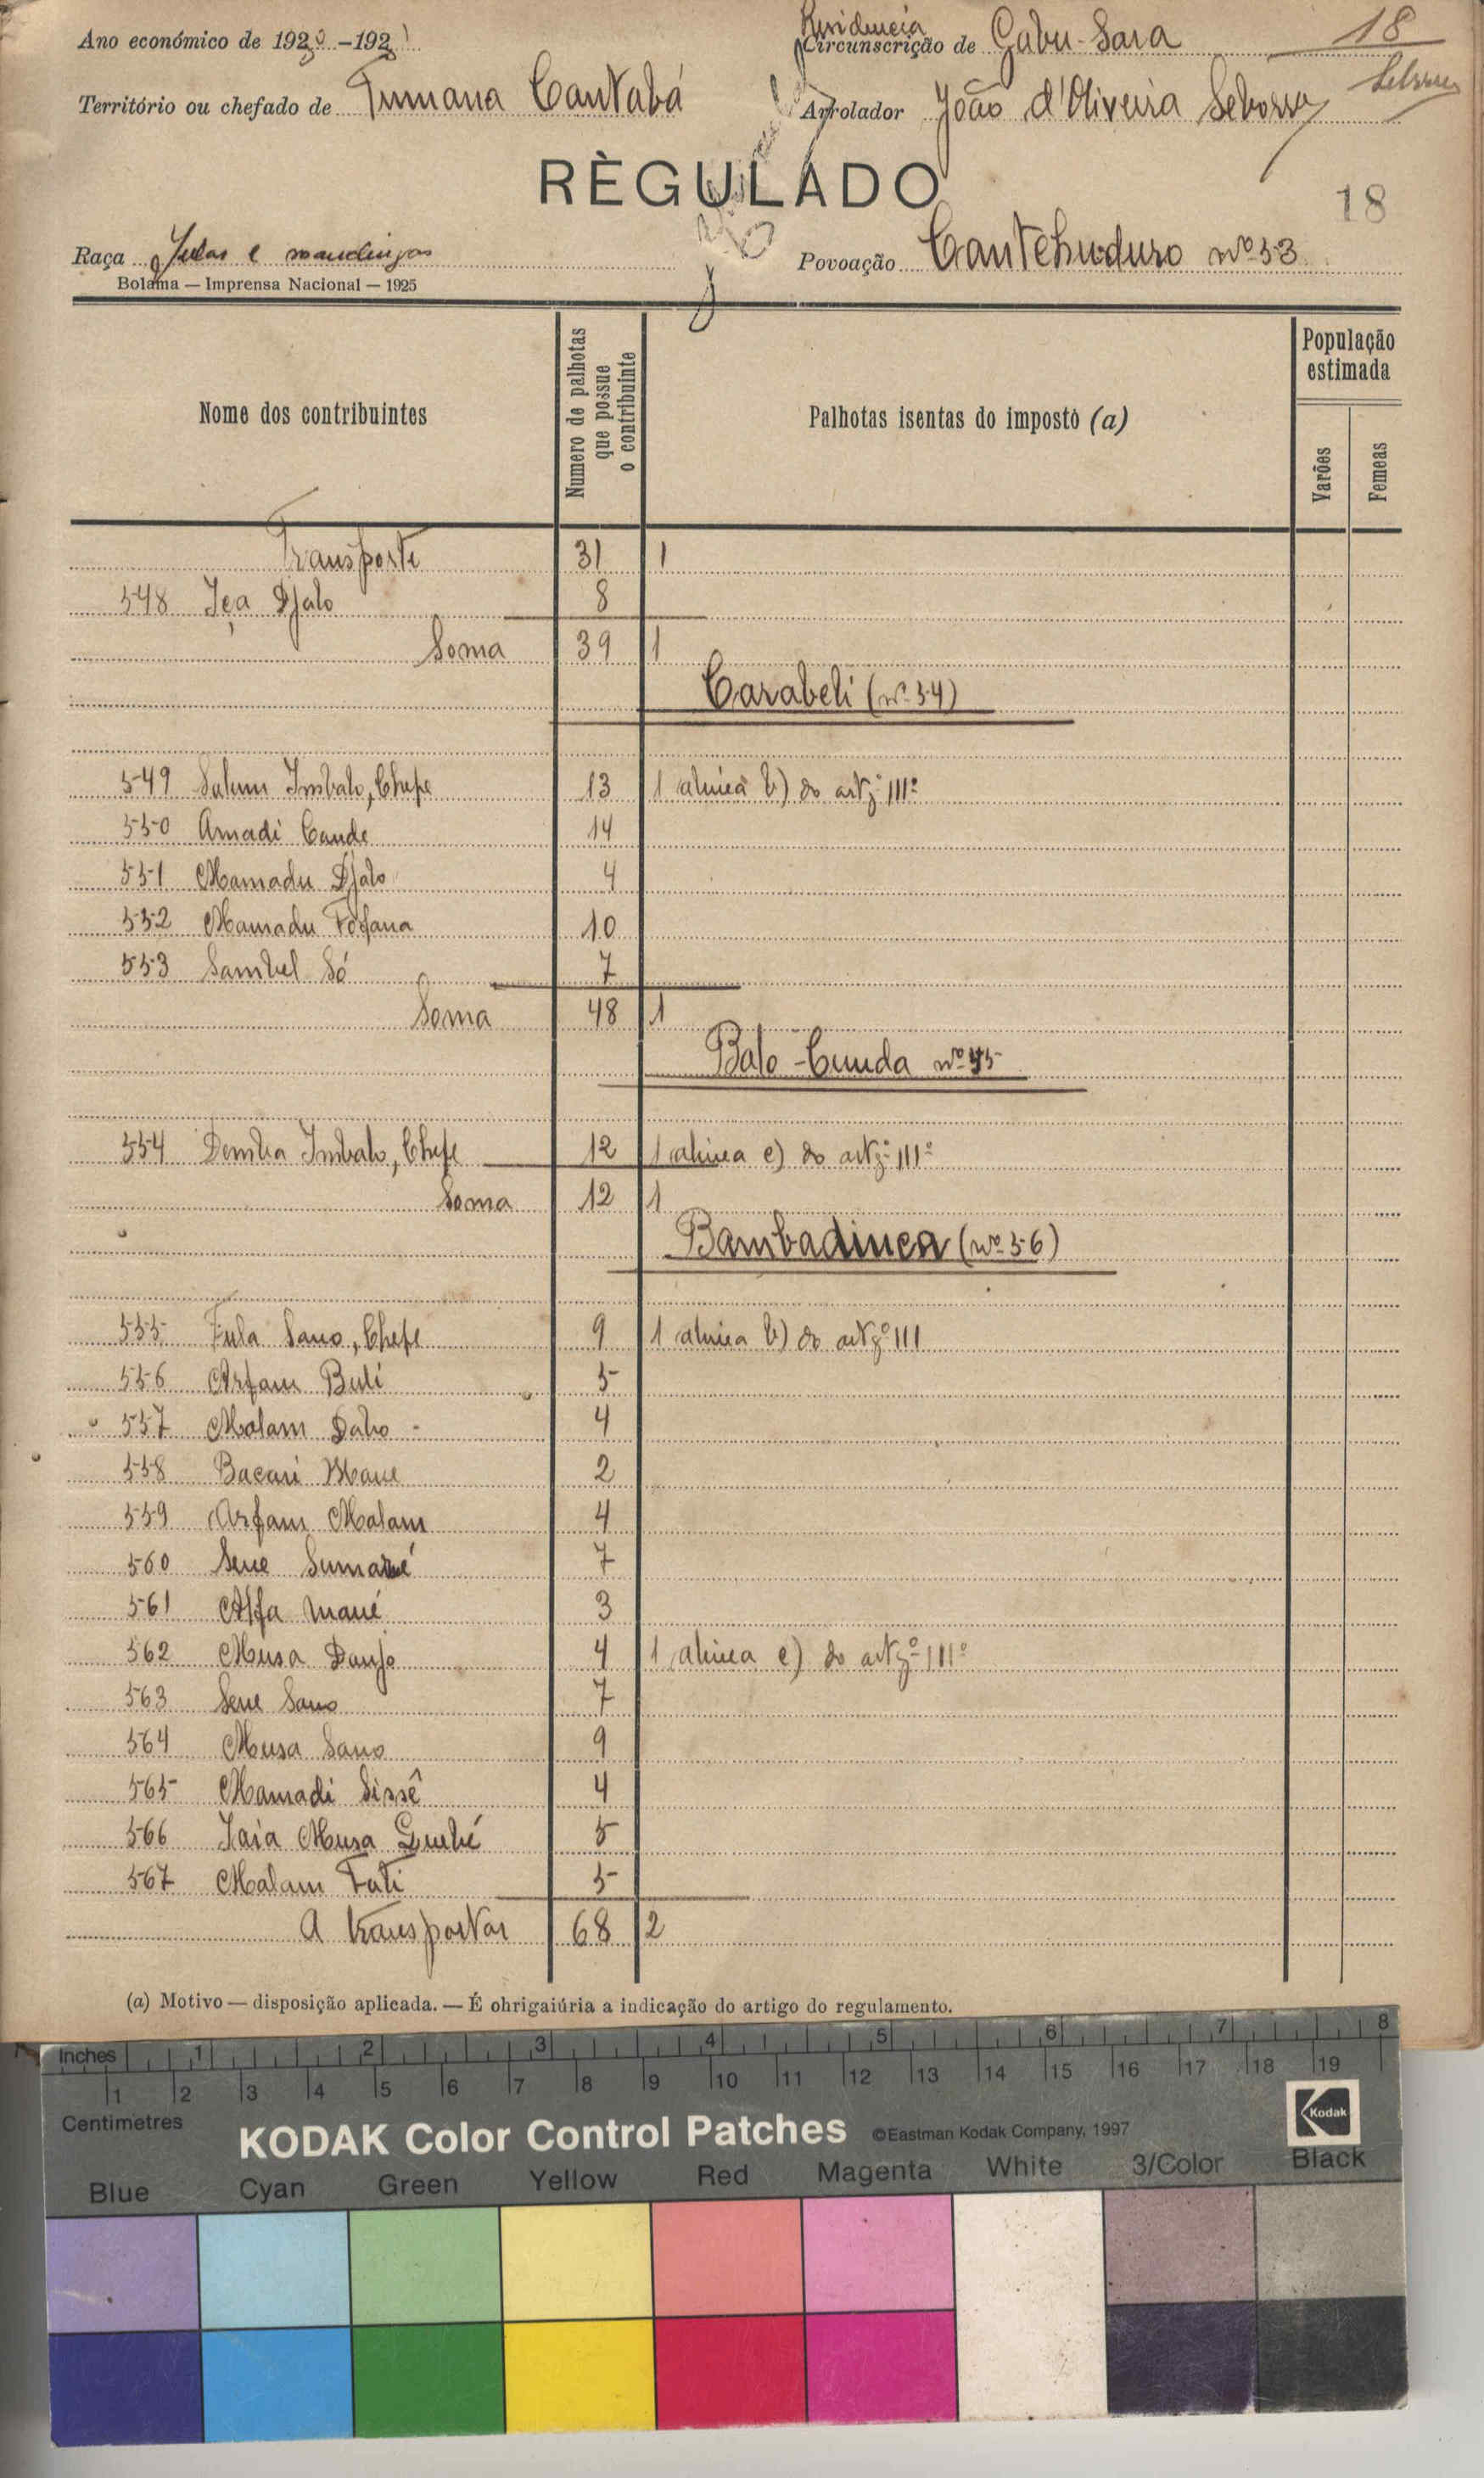 Residencia
Ano económico de 1930-1931 Circunscrição de Gabu-Sara 18
Território ou chefado de Tumana Cantabá Arrolador João d'Oliveira
RÈGULADO
18
Raça Fulas e mandingas Povoação Cantehuduro nº 53
Bolama — Imprensa Nacional — 1925
Nome dos contribuintes
Numero de palhotas que possue o contribuinte
Palhotas isentas do imposto (a)
População estimada
Varões
Femeas
Transporte 31 1
548 Iça Djalo 8
Soma 39 1
Carabeli (nº 54)
549 Salum Imbalo, Chefe 13 1 alinea b) do artgº 111º
550 Amadi Cande 14
551 Mamadu Djalo 4
552 Mamadu Fofana 10
553 Sambel Só 7
Soma 48 1
Balo-Cunda nº 55
554 Demba Imbalo, Chefe 12 1 alinea e) do artgº 111º
Soma 12 1
Bambadinca (nº 56)
555 Fula Sano, Chefe 9 1 alinea b) do artgº 111
556 Arfam Buli 5
557 Malam Dabo 4
558 Bacari Mane 2
559 Arfam Malam 4
560 Sene 7
561 Alfa Mané 3
562 Musa Danjo 4 1 alinea e) do artgº 111º
563 Sene Sano 7
564 Musa Sano 9
565 Mamadi Sissê 4
566 Iaia Musa 5
567 Malam Fati 5
A transportar 68 2
(a) Motivo — disposição aplicada. — É ohrigaiúria a indicação do artigo do regulamento.
Inches 1 2 3 4 5 6 7 8
1 2 3 4 5 6 7 8 9 10 11 12 13 14 15 16 17 18 19
Centimetres
KODAK Color Control Patches ©Eastman Kodak Company, 1997 Kodak
Blue Cyan Green Yellow Red Magenta White 3/Color Black